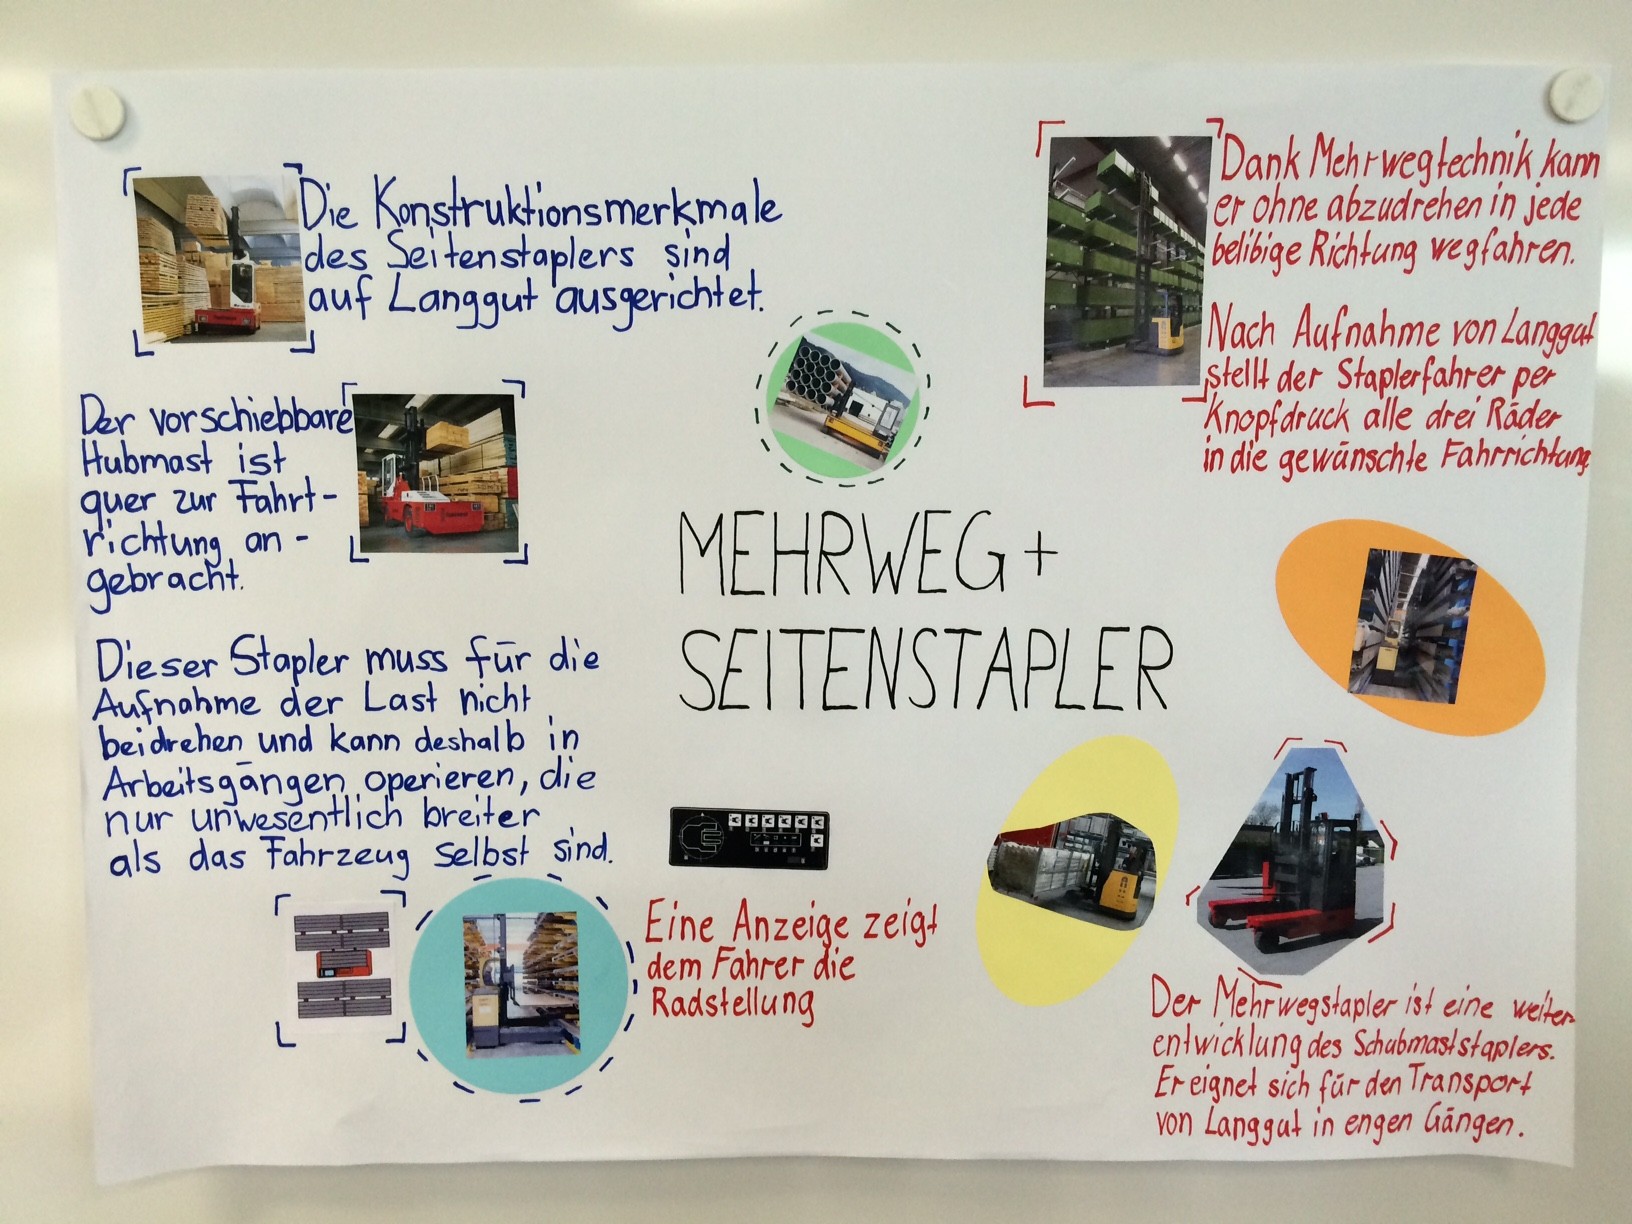 Die Konstruktionsmerkmale
des Seitenstaplers sind
auf Langgut ausgerichtet.
Der vorschiebbare
Hubmast ist
quer zur Fahrt-
richtung an-
gebracht.
Dieser Stapler muss für die
Aufnahme der Last nicht
beidrehen und kann deshalb in
Arbeitsgängen operieren, die
nur unwesentlich breiter
als das Fahrzeug selbst sind.
MEHRWEG+
SEITENSTAPLER
Eine Anzeige zeigt
dem Fahrer die
Radstellung
Dank Mehrwegtechnik kann
er ohne abzudrehen in jede
belibige Richtung wegfahren.
Nach Aufnahme von Langgut
stellt der Staplerfahrer per
Knopfdruck alle drei Räder
in die gewünschte Fahrrichtung
Der Mehrwegstapler ist eine weiter-
entwicklung des Schubmaststaplers.
Er eignet sich für den Transport
von Langgut in engen Gängen.